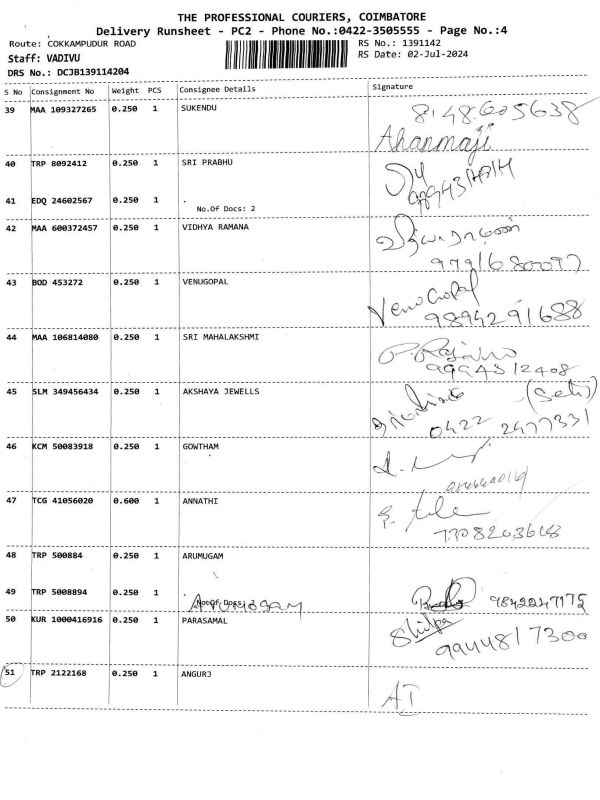 THE PROFESSIONAL COURIERS, COIMBATORE
Delivery Runsheet - PC2 - Phone No.:0422-3505555 - Page No.:4
Route: COKKAMPUDUR ROAD
RS No.: 1391142
Staff: VADIVU
RS Date: 02-Jul-2024
DRS No.: DCJB139114204
S No Consignment No Weight PCS Consignee Details Signature
39 MAA 109327265 0.250 1 SUKENDU
8148605638
Ahanmaji
40 TRP 8092412 0.250 1 SRI PRABHU
41 EDQ 24602567 0.250 1 .
No.Of Docs: 2
42 MAA 600372457 0.250 1 VIDHYA RAMANA
9791680097
43 BOD 453272 0.250 1 VENUGOPAL
Venugopal
9894291688
44 MAA 106814080 0.250 1 SRI MAHALAKSHMI
9994312408
45 SLM 349456434 0.250 1 AKSHAYA JEWELLS
0422 2477331
46 KCM 50083918 0.250 1 GOWTHAM
47 TCG 41056020 0.600 1 ANNATHI
48 TRP 500884 0.250 1 ARUMUGAM
49 TRP 5008894 0.250 1
No.Of Docs:
Arumogam
9842247175
50 KUR 1000416916 0.250 1 PARASAMAL
Shilpa
9944817300
51 TRP 2122168 0.250 1 ANGURJ
AT